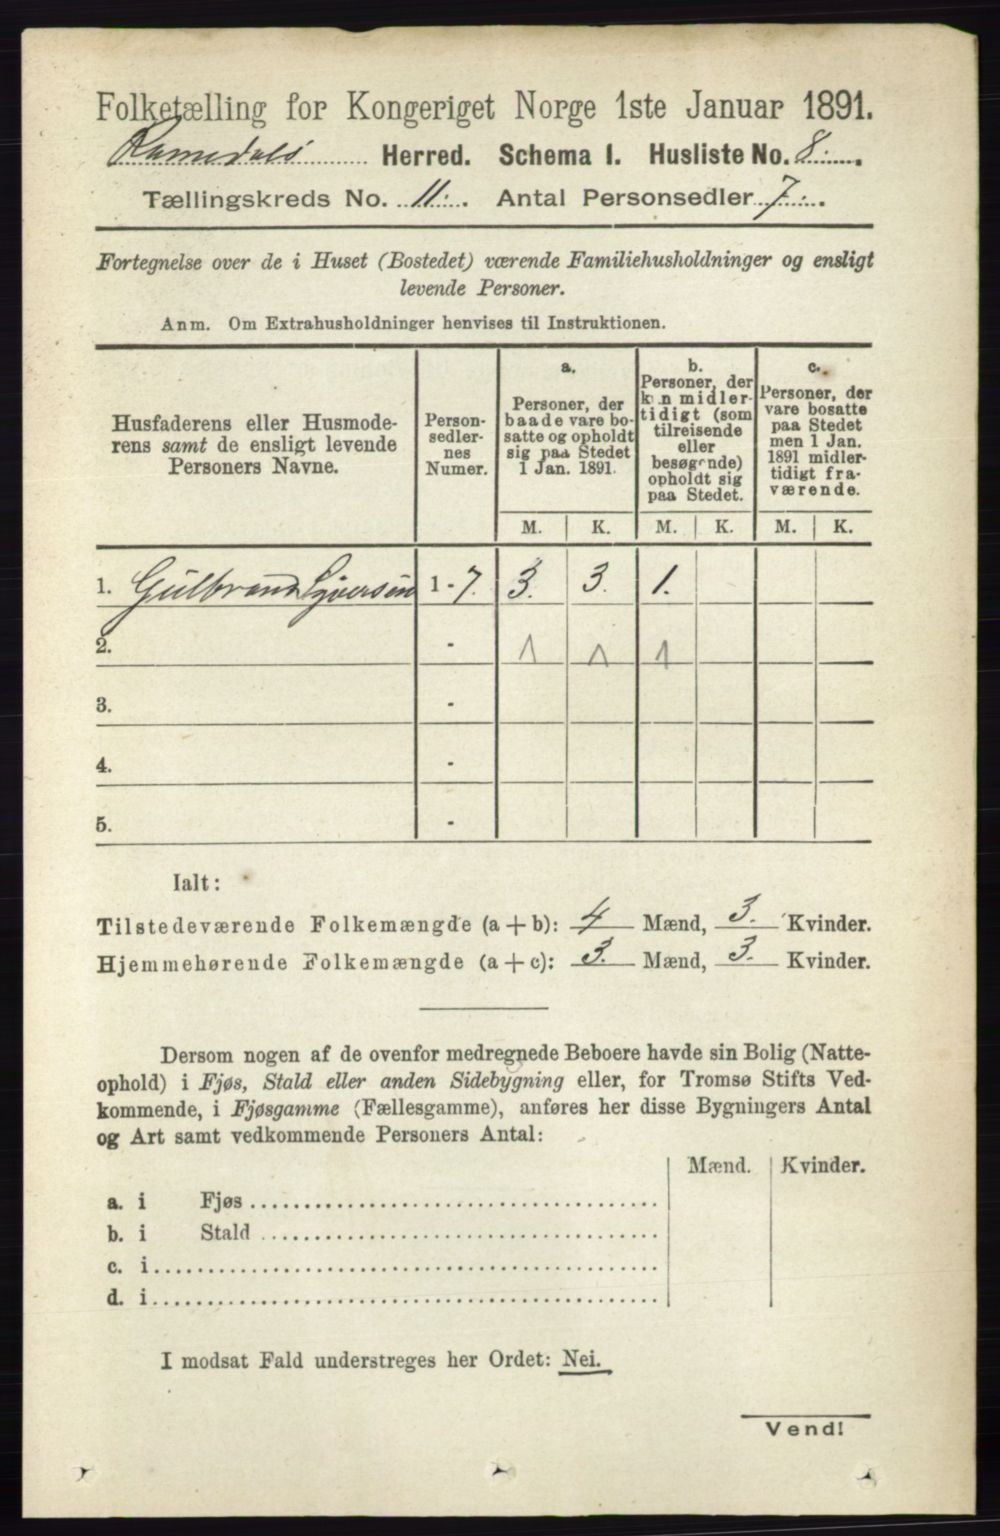 Folketælling for Kongeriget Norge 1ste Januar 1891.
Romedals Herred. Schema I. Husliste No. 8.
Tællingskreds No. 11. Antal Personsedler 7.
Fortegnelse over de i Huset (Bostedet) værende Familiehusholdninger og ensligt
levende Personer.
Anm. Om Extrahusholdninger henvises til Instruktionen.
Husfaderens eller Husmode-
rens samt de ensligt levende
Personers Navne.
Person-
sedler-
nes
Numer.
a.
Personer, der
baade vare bo-
satte og opholdt
sig paa Stedet
1 Jan. 1891.
b.
Personer, der
kun midler-
tidigt (som
tilreisende
eller
besøgende)
opholdt sig
paa Stedet.
c.
Personer, der
vare bosatte
paa Stedet
men 1 Jan.
1891 midler-
tidigt fra-
værende.
M. K. M. K. M. K.
1. Gulbrand Syversen 1 - 7. 3. 3. 1.
2. - 1 1 1
3. -
4. -
5. -
Ialt:
Tilstedeværende Folkemængde (a + b): 4 Mænd, 3. Kvinder.
Hjemmehørende Folkemængde (a + c): 3. Mænd, 3. Kvinder.
Dersom nogen af de ovenfor medregnede Beboere havde sin Bolig (Natte-
ophold) i Fjøs, Stald eller anden Sidebygning eller, for Tromsø Stifts Ved-
kommende, i Fjøsgamme (Fællesgamme), anføres her disse Bygningers Antal
og Art samt vedkommende Personers Antal:
Mænd. Kvinder.
a. i Fjøs
b. i Stald
c. i
d. i
I modsat Fald understreges her Ordet: Nei.
Vend!